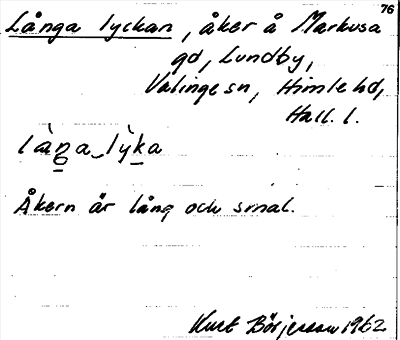 76
Långa lyckan, åker å Markusa
gd, Lundby,
Valinge sn, Himle hd,
Hall. l.
Åkern är lång och smal.
Kurt Börjesson 1962